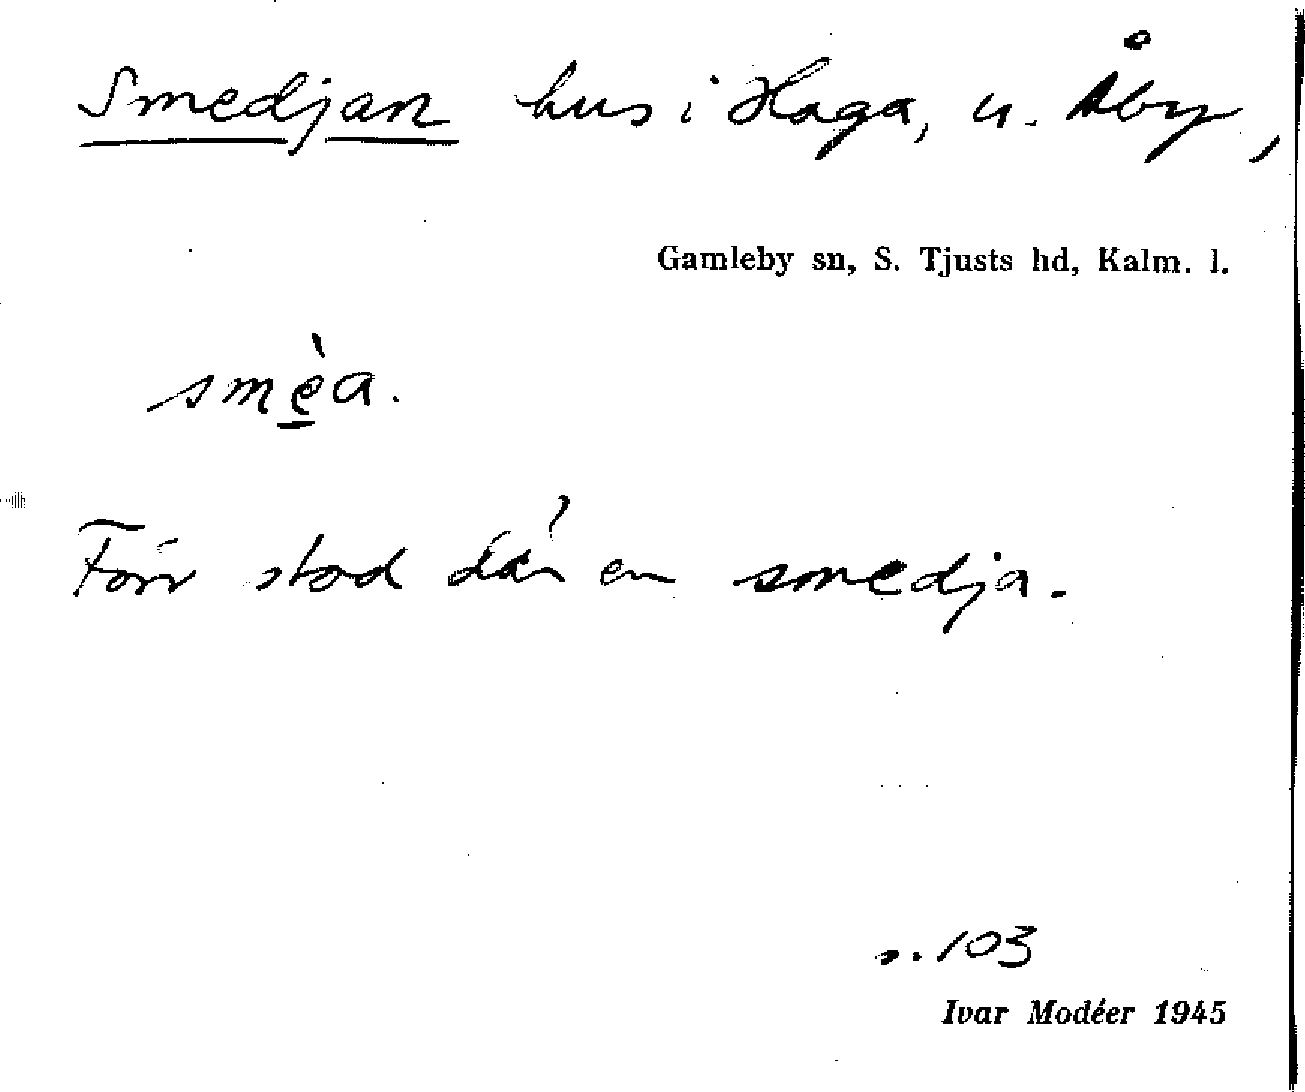 Smedjan hus i Haga, u. Åby,
Gamleby sn, S. Tjusts hd, Kalm. l.
smè̠a.
Förr stod där en smedja.
s. 103
Ivar Modéer 1945